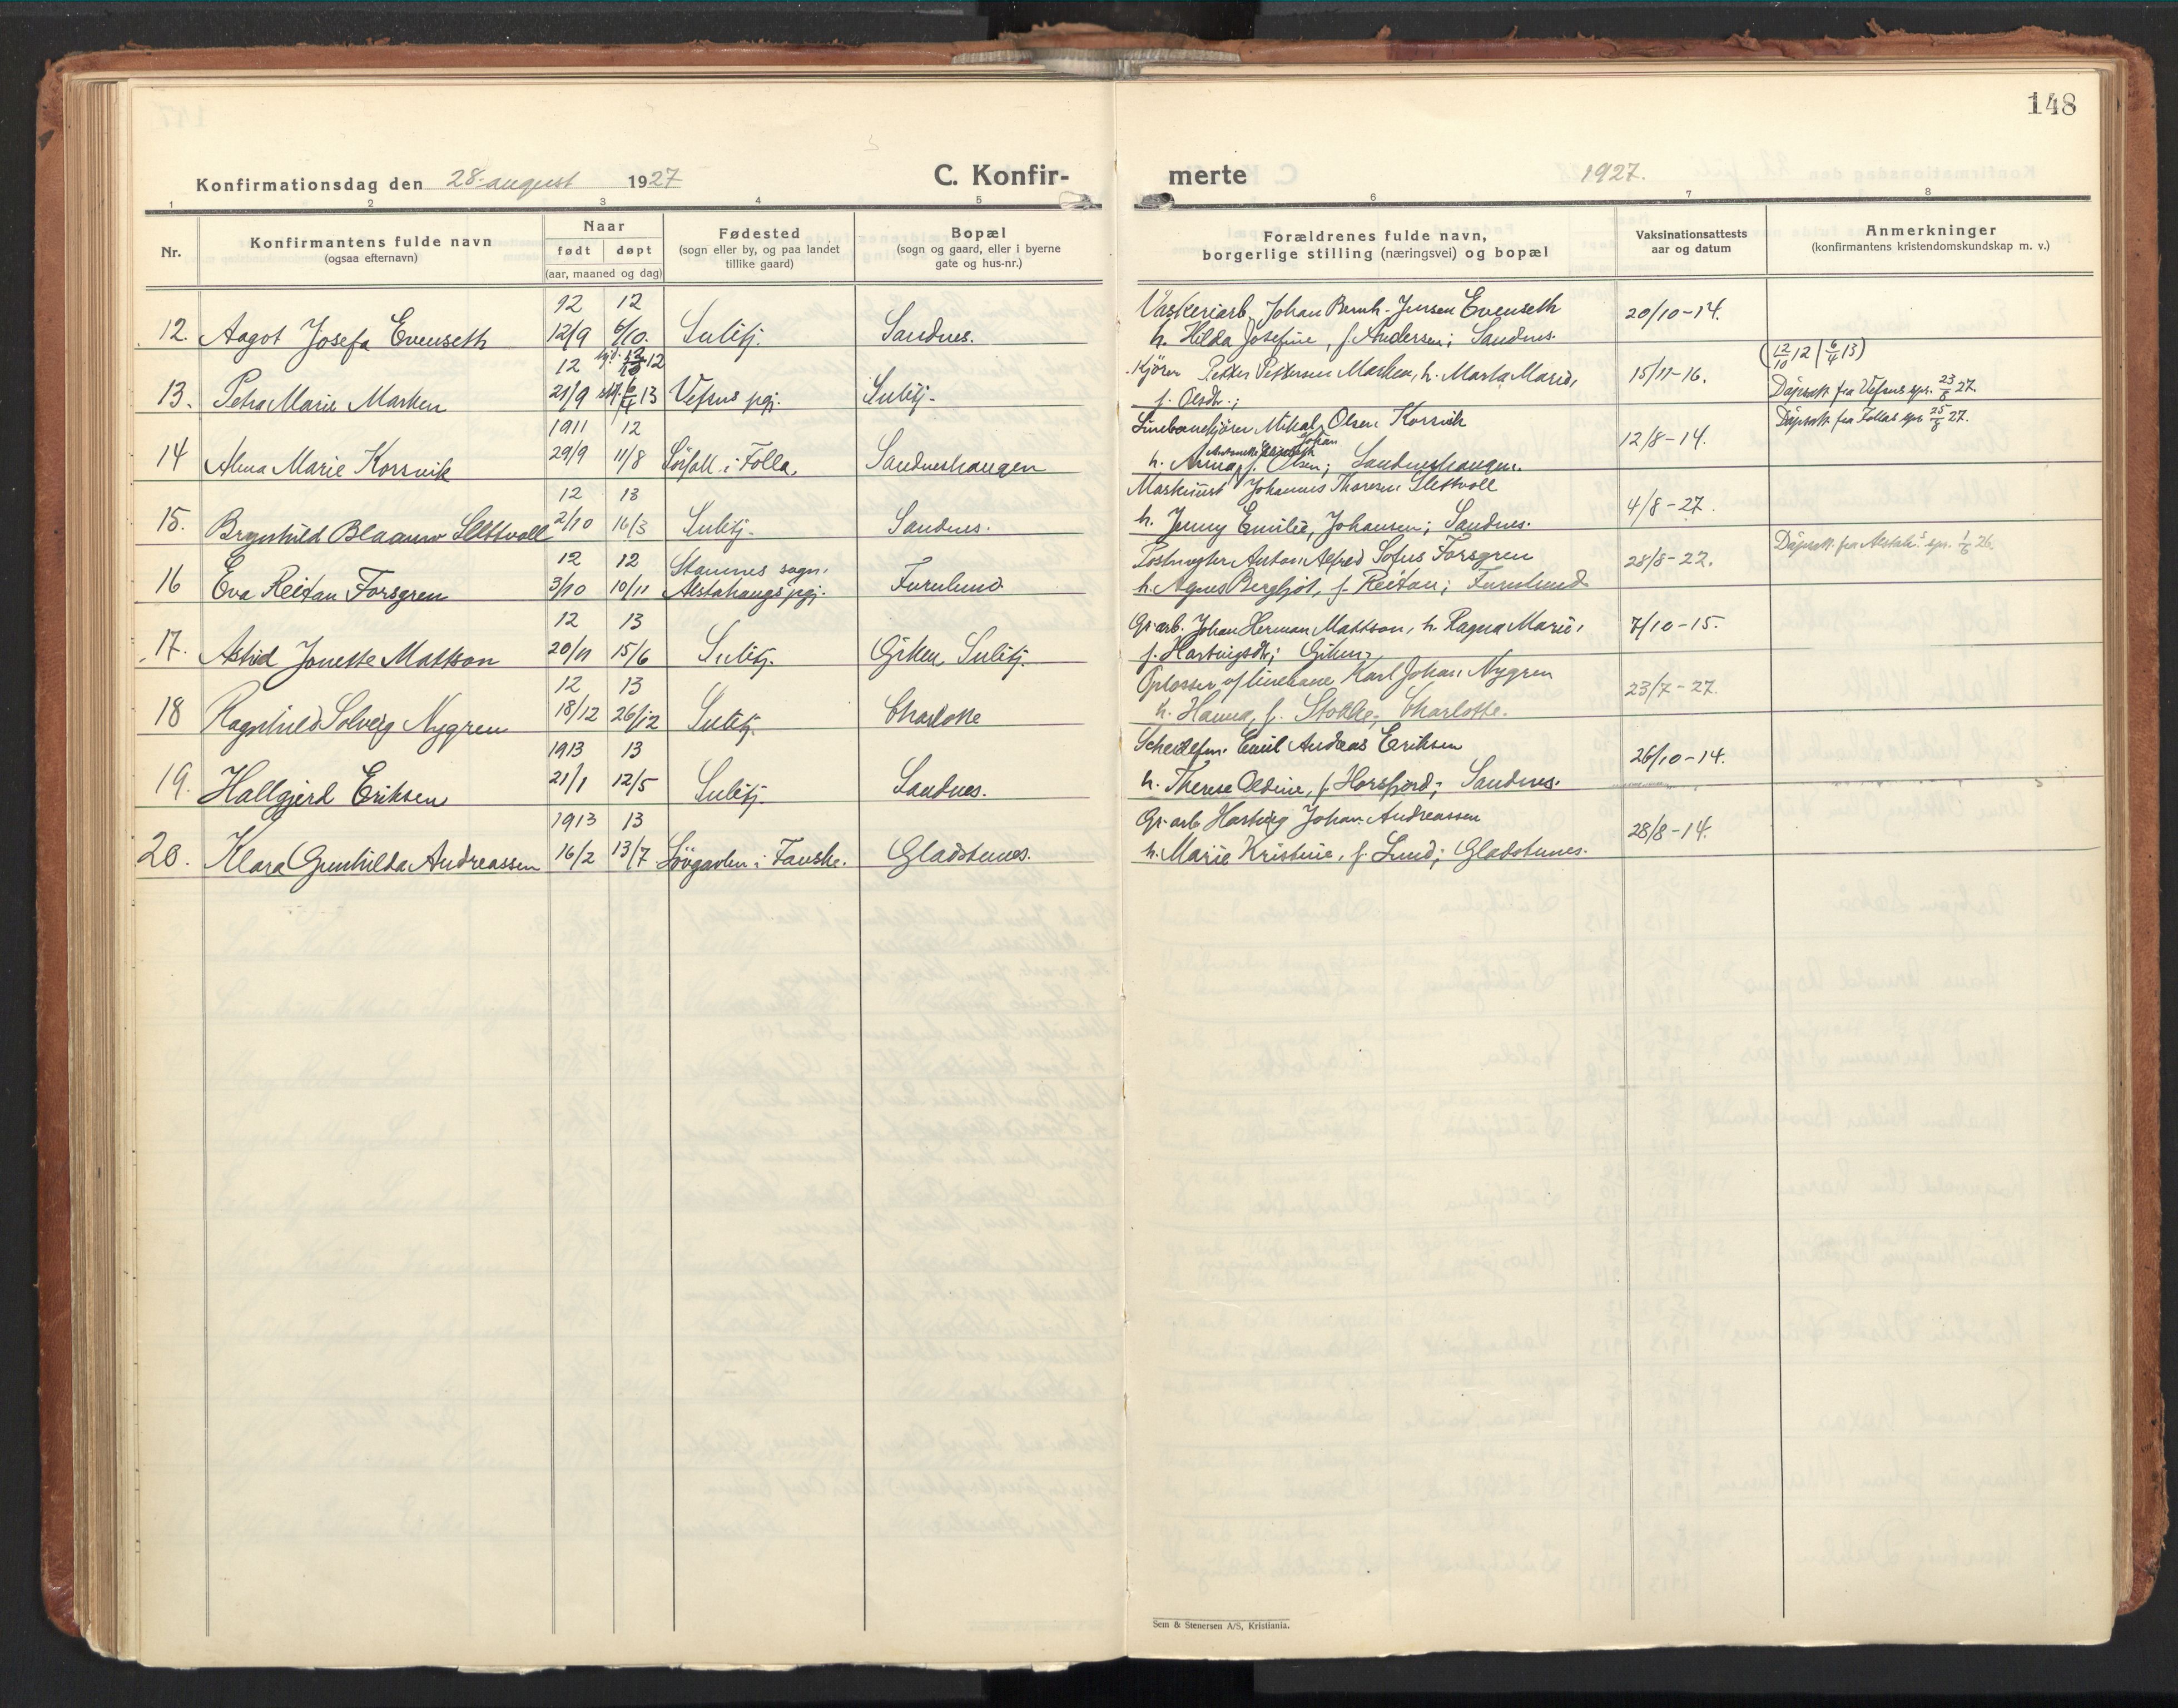 148
Konfirmationsdag den 28. august 1927 C. Konfir-
merte 1927.
1 2 3 4 5
6 7 8
Nr. Konfirmantens fulde navn (ogsaa efternavn) Naar født døpt (aar, maaned og dag) Fødested (sogn eller by, og paa landet tillike gaard) Bopæl (sogn og gaard, eller i byerne gate og hus-nr.)
Forældrenes fulde navn, borgerlige stilling (næringsvei) og bopæl Vaksinationsattests aar og datum Anmerkninger (konfirmantens kristendomskundskap m. v.)
12 12
12. Aagot Josefa Evenseth 12/9 6/10. Sulitj. Sandnes.
12 hjd. 12/10 12
13. Petra Marie Marken 21/9 stf. 6/4 13 Vefsns pgj. Sulitj.
1911 12
14 Alma Marie Korsvik 29/9 11/8 Sørfold i Folla. Sandneshaugen
12 13
15. Brynhild Blaauw Slettvoll 2/10 16/3 Sulitj. Sandnes.
12 12 Stamnes sogn.
16 Eva Reitan Forsgren 3/10 10/11 Alstahaugs pgj. Furulund
12 13
17. Astrid Jonette Mattson 20/11 15/6 Sulitj. Giken, Sulitj.
12 13
18 Ragnhild Solveig Nygren 18/12 26/12 Sulitj. Charlotte
1913 13
19. Hallgjerd Eriksen 21/1 12/5 Sulitj. Sandnes.
1913 13
20. Klara Gunhilda Andreassen 16/2 13/7 Løvgavlen i Fauske. Gladstunes.
Vaskeriarb. Johan Bernh. Jensen Evenseth 20/10-14.
h. Hilda Josefine, f. Andersen; Sandnes.
Kjører Petter Pettersen Marken, h. Marta Marie, 15/11-16. (12/10 12 | 6/4 13)
f. Olsdr.; Dåpsatt. fra Vefsns spr. 23/8 27.
Linebanekjører Mikal Olsen Korsvik 12/8-14. Dåpsatt. fra Foldas spr. 25/8 27.
Johan
h. Anna, f. Olsen; Sandneshaugen.
Maskinist Johannes Thoresen Slettvoll 4/8-27.
h. Jenny Emilie, Johansen; Sandnes.
Postvogter Anton Alfred Sofus Forsgren 28/8-22. Dåpsatt. fra Alstah.s spr. 1/6 26.
h. Agnes Bergljot, f. Reitan; Furulund
Gr.arb. Johan Herman Mattson, h. Ragna Marie, 7/10-15.
f. Hartvigsdr; Giken,
Oplosser v/ linebane Karl Johan Nygren 23/7-27.
h. Hanna, f. Stokke; Charlotte.
Scheidefm. Emil Andreas Eriksen 26/10-14.
h. Therese Oldine, f. Horsfjord; Sandnes.
Gr.arb. Hartvig Johan Andreassen 28/8-14.
h. Marie Kristine, f. Lund; Gladstunes.
Sem & Stenersen A/S, Kristiania.